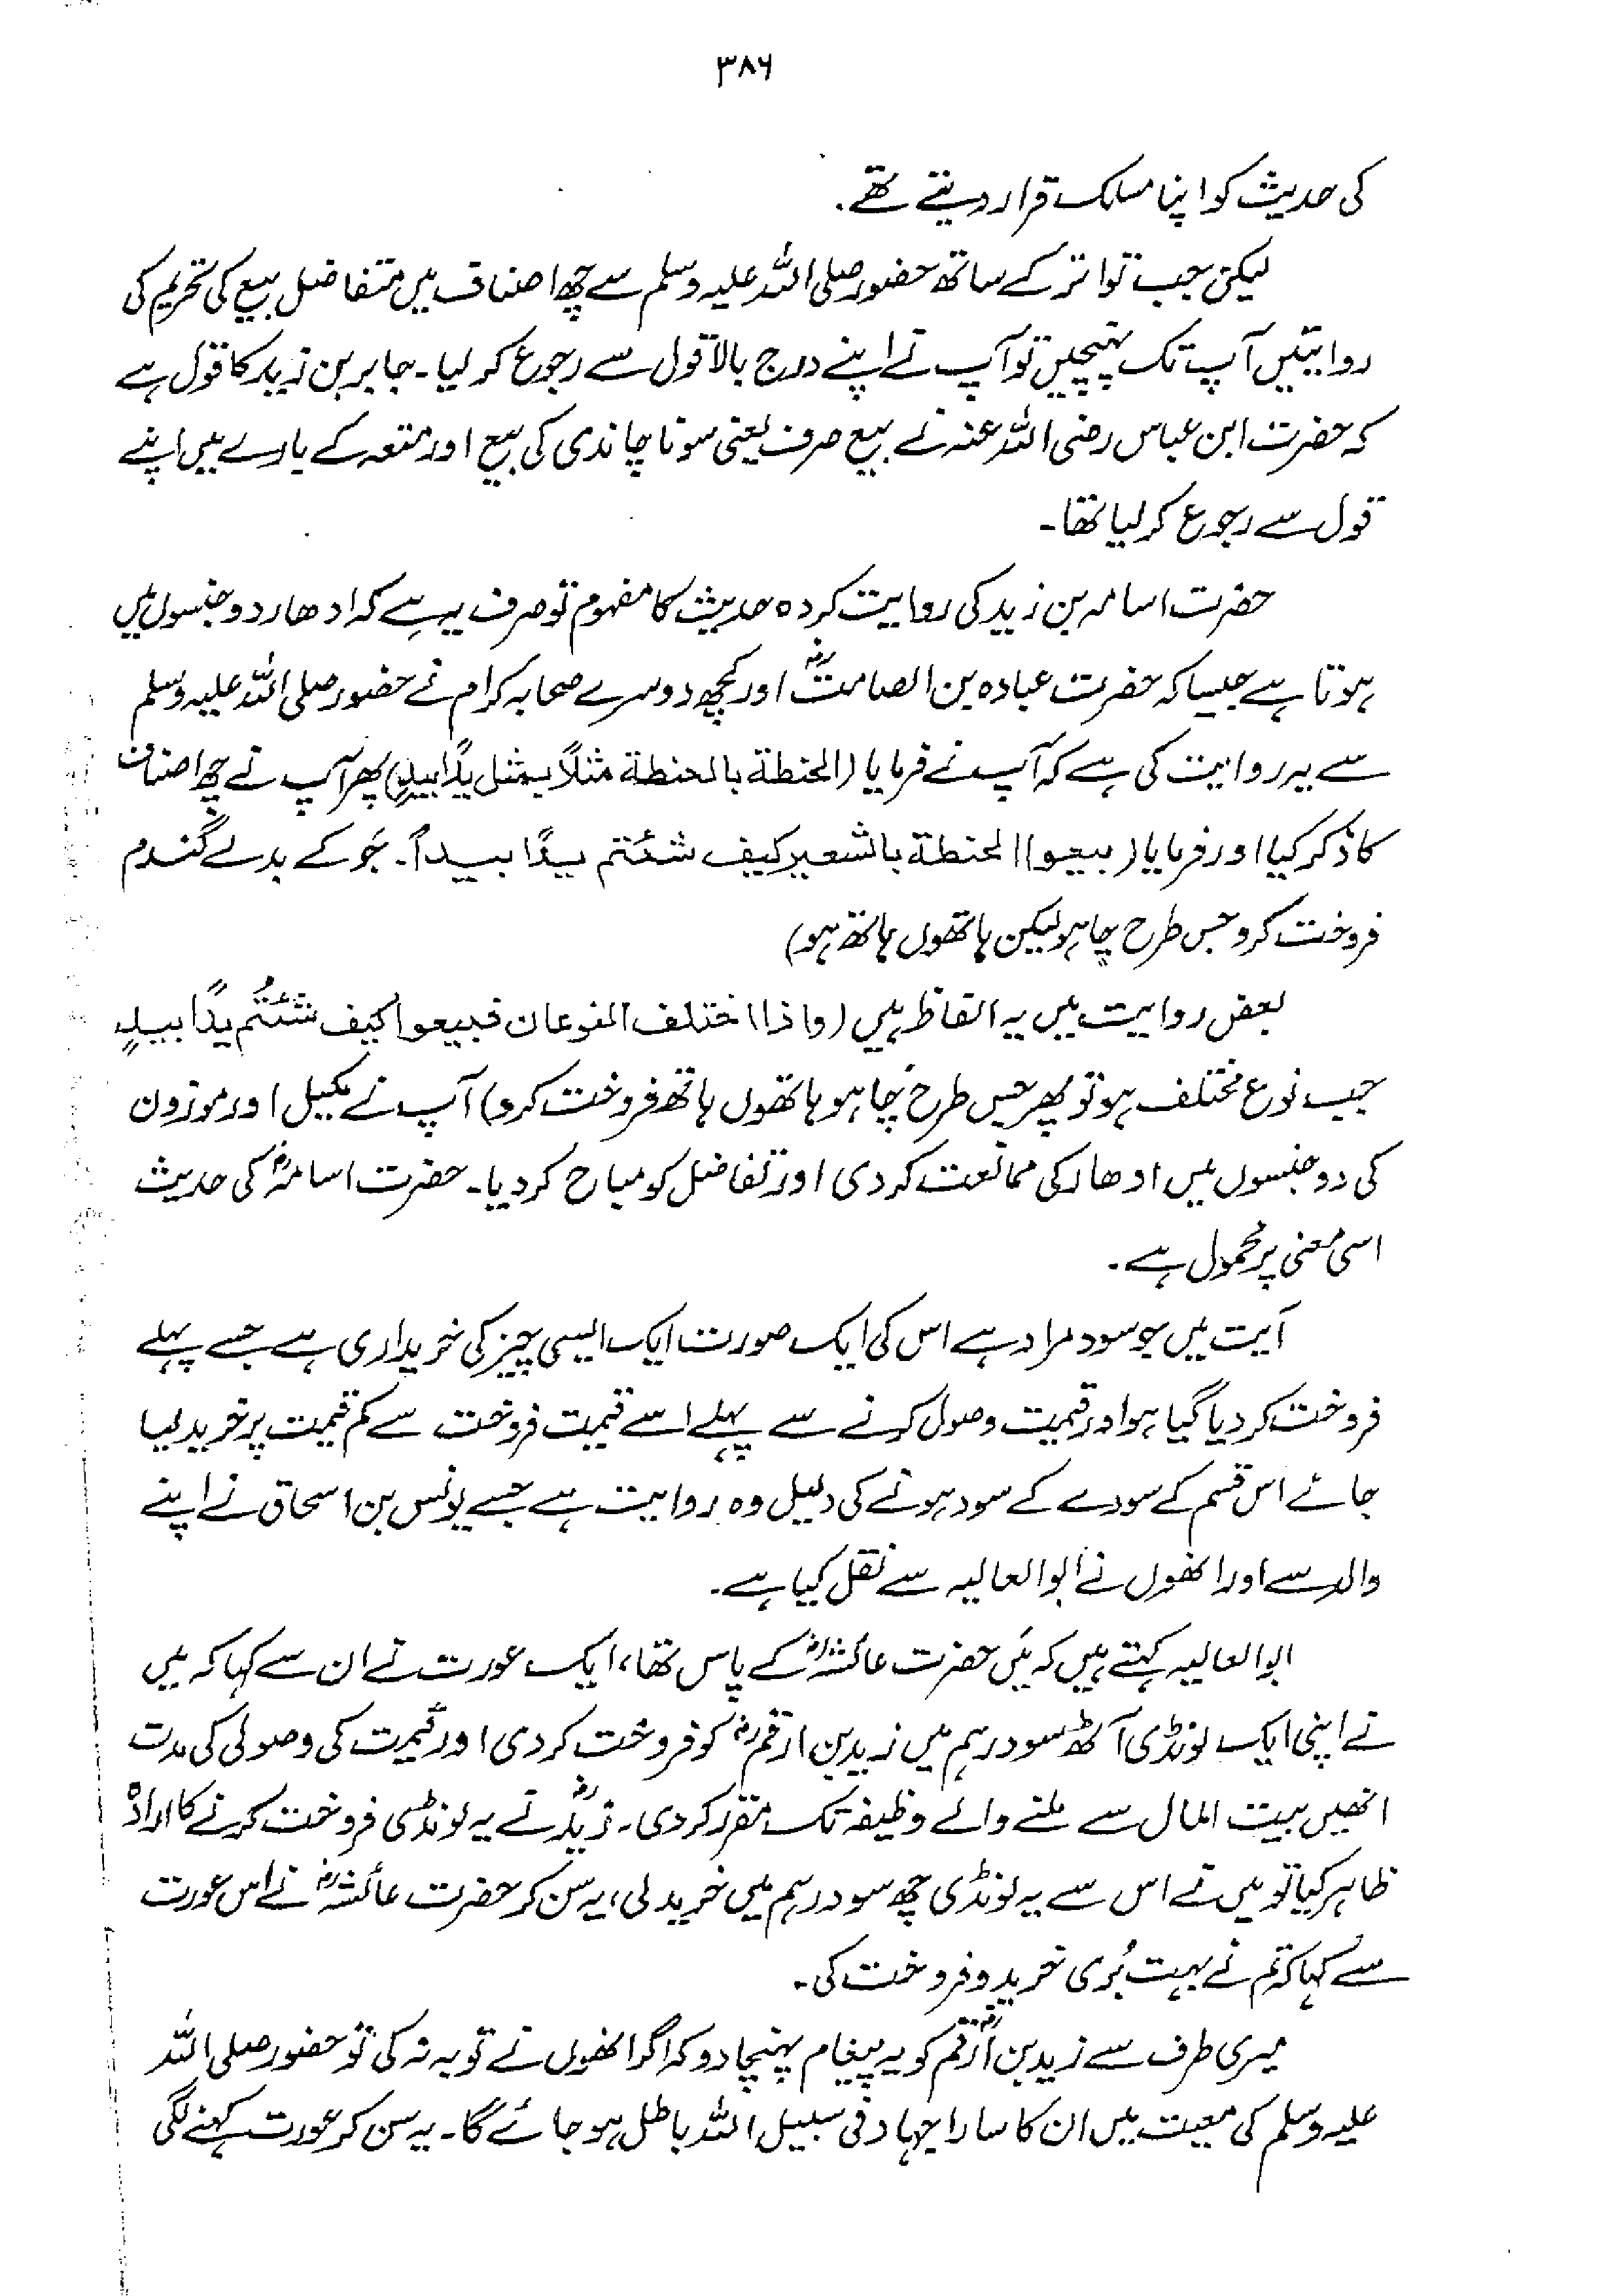 ۳۸۶
کی حدیث کو اپنا مسلک قرار دیتے تھے۔
لیکن جب تواتر کے ساتھ حضور صلی اللہ علیہ وسلم سے چھ اصناف میں متفاضل بیع کی تحریم کی
روایتیں آپ تک پہنچیں تو آپ نے اپنے درج بالا قول سے رجوع کر لیا۔ جابر بن زید کا قول ہے
کہ حضرت ابن عباس رضی اللہ عنہ نے بیع صرف یعنی سونا چاندی کی بیع اور متعہ کے بارے میں اپنے
قول سے رجوع کر لیا تھا۔
حضرت اسامہ بن زید کی روایت کردہ حدیث کا مفہوم تو صرف یہ ہے کہ ادھار دو جنسوں میں
ہوتا ہے جیسا کہ حضرت عبادہ بن الصامتؓ اور کچھ دوسرے صحابہ کرام نے حضور صلی اللہ علیہ وسلم
سے یہ روایت کی ہے کہ آپ نے فرمایا (الحنطة بالحنطة مثلاً بمثل یدًا بیدٍ) پھر آپ نے چھ اصناف
کا ذکر کیا اور فرمایا (بیعوا) الحنطة بالشعیر کیف شئتم یدًا بیداً۔ جَو کے بدلے گندم
فروخت کرو جس طرح چاہو لیکن ہاتھوں ہاتھ ہو)
بعض روایت میں یہ الفاظ ہیں (واذا اختلف النوعان فبیعوا کیف شئتُم یدًا بیدٍ
جب نوع مختلف ہو تو پھر جس طرح چاہو ہاتھوں ہاتھ فروخت کرو) آپ نے مکیل اور موزون
کی دو جنسوں میں ادھار کی ممانعت کر دی اور تفاضل کو مباح کر دیا۔ حضرت اسامہؓ کی حدیث
اسی معنی پر محمول ہے۔
آیت میں جو سود مراد ہے اس کی ایک صورت ایک ایسی چیز کی خریداری ہے جسے پہلے
فروخت کر دیا گیا ہو اور قیمت وصول کرنے سے پہلے اسے قیمت فروخت سے کم قیمت پر خرید لیا
جائے اس قسم کے سودے کے سود ہونے کی دلیل وہ روایت ہے جسے یونس بن اسحاق نے اپنے
والد سے اور انھوں نے ابوالعالیہ سے نقل کیا ہے۔
ابوالعالیہ کہتے ہیں کہ مَیں حضرت عائشہؓ کے پاس تھا، ایک عورت نے ان سے کہا کہ میں
نے اپنی ایک لونڈی آٹھ سو درہم میں زید بن ارقمؓ کو فروخت کر دی اور قیمت کی وصولی کی مدت
انھیں بیت المال سے ملنے والے وظیفہ تک مقرر کر دی۔ زیدؓ نے یہ لونڈی فروخت کرنے کا ارادہ
ظاہر کیا تو میں نے اس سے یہ لونڈی چھ سو درہم میں خرید لی، یہ سن کر حضرت عائشہؓ نے اس عورت
سے کہا کہ تم نے بہت بُری خرید و فروخت کی۔
میری طرف سے زید بن ارقمؓ کو یہ پیغام پہنچا دو کہ اگر انھوں نے توبہ نہ کی تو حضور صلی اللہ
علیہ وسلم کی معیت میں ان کا سارا جہاد فی سبیل اللہ باطل ہو جائے گا۔ یہ سن کر عورت کہنے لگی